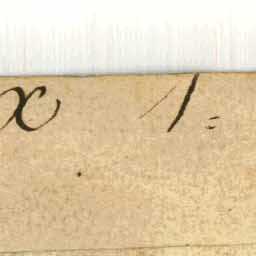 x 1 =